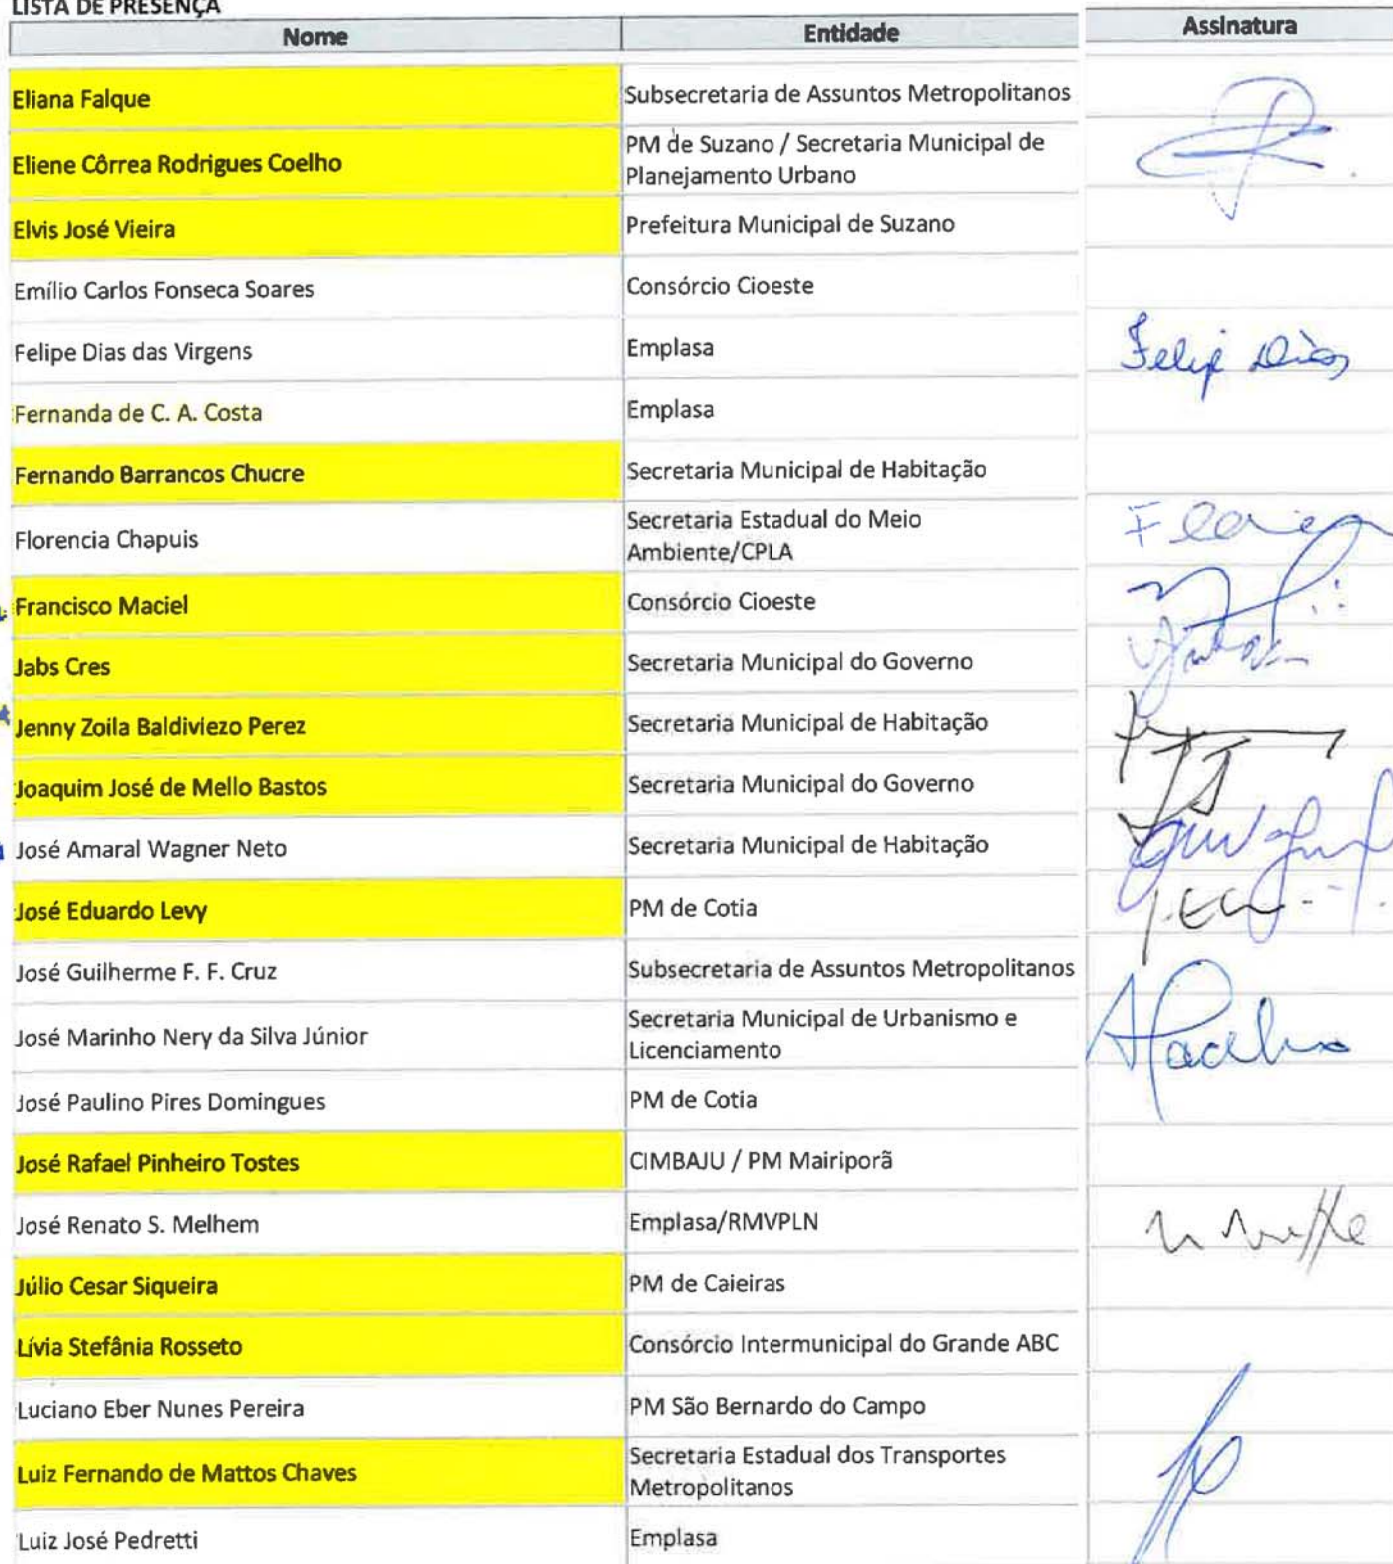 LISTA DE PRESENÇA
Nome Entidade Assinatura
Eliana Falque Subsecretaria de Assuntos Metropolitanos
Eliene Côrrea Rodrigues Coelho PM de Suzano / Secretaria Municipal de
Planejamento Urbano
Elvis José Vieira Prefeitura Municipal de Suzano
Emílio Carlos Fonseca Soares Consórcio Cioeste
Felipe Dias das Virgens Emplasa Felipe Dias
Fernanda de C. A. Costa Emplasa
Fernando Barrancos Chucre Secretaria Municipal de Habitação
Florencia Chapuis Secretaria Estadual do Meio
Ambiente/CPLA
Francisco Maciel Consórcio Cioeste
Jabs Cres Secretaria Municipal do Governo
Jenny Zoila Baldiviezo Perez Secretaria Municipal de Habitação
Joaquim José de Mello Bastos Secretaria Municipal do Governo
José Amaral Wagner Neto Secretaria Municipal de Habitação
José Eduardo Levy PM de Cotia
José Guilherme F. F. Cruz Subsecretaria de Assuntos Metropolitanos
José Marinho Nery da Silva Júnior Secretaria Municipal de Urbanismo e
Licenciamento
José Paulino Pires Domingues PM de Cotia
José Rafael Pinheiro Tostes CIMBAJU / PM Mairiporã
José Renato S. Melhem Emplasa/RMVPLN
Júlio Cesar Siqueira PM de Caieiras
Lívia Stefânia Rosseto Consórcio Intermunicipal do Grande ABC
Luciano Eber Nunes Pereira PM São Bernardo do Campo
Luiz Fernando de Mattos Chaves Secretaria Estadual dos Transportes
Metropolitanos
Luiz José Pedretti Emplasa